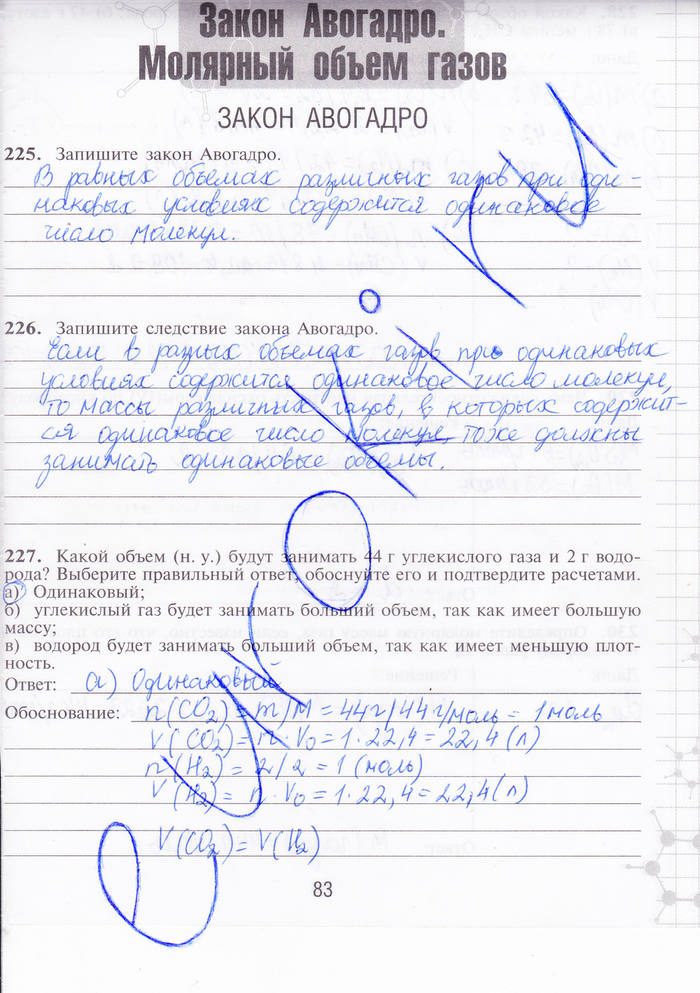 Закон Авогадро.
Молярный объем газов
ЗАКОН АВОГАДРО
225. Запишите закон Авогадро.
В равных объемах различных газов при оди-
наковых условиях содержится одинаковое
число молекул.
226. Запишите следствие закона Авогадро.
Если в разных объемах газов при одинаковых
условиях содержится одинаковое число молекул,
то массы различных газов, в которых содержит-
ся одинаковое число молекул, тоже должны
занимать одинаковые объемы.
227. Какой объем (н. у.) будут занимать 44 г углекислого газа и 2 г водо-
рода? Выберите правильный ответ, обоснуйте его и подтвердите расчетами.
а) Одинаковый;
б) углекислый газ будет занимать больший объем, так как имеет большую
массу;
в) водород будет занимать больший объем, так как имеет меньшую плот-
ность.
Ответ: а) Одинаковый
Обоснование: n(CO₂) = m/M = 44г/44г/моль = 1моль
V(CO₂) = n · V₀ = 1 · 22,4 = 22,4 (л)
n(H₂) = 2/2 = 1 (моль)
V(H₂) = n · V₀ = 1 · 22,4 = 22,4 (л)
V(CO₂) = V(H₂)
83